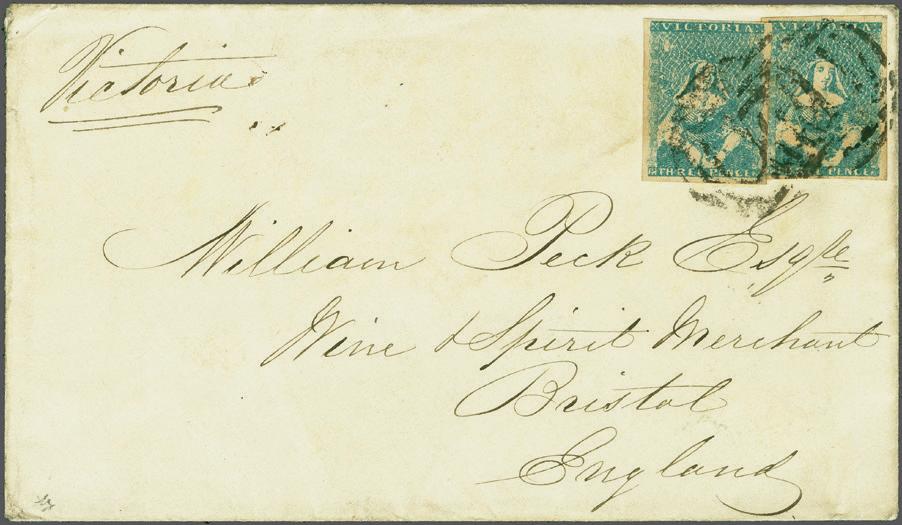 Victoria
VICTORIA
THREE PENCE
PENCE
William Peck Esqre
Wine & Spirit Merchant
Bristol
England